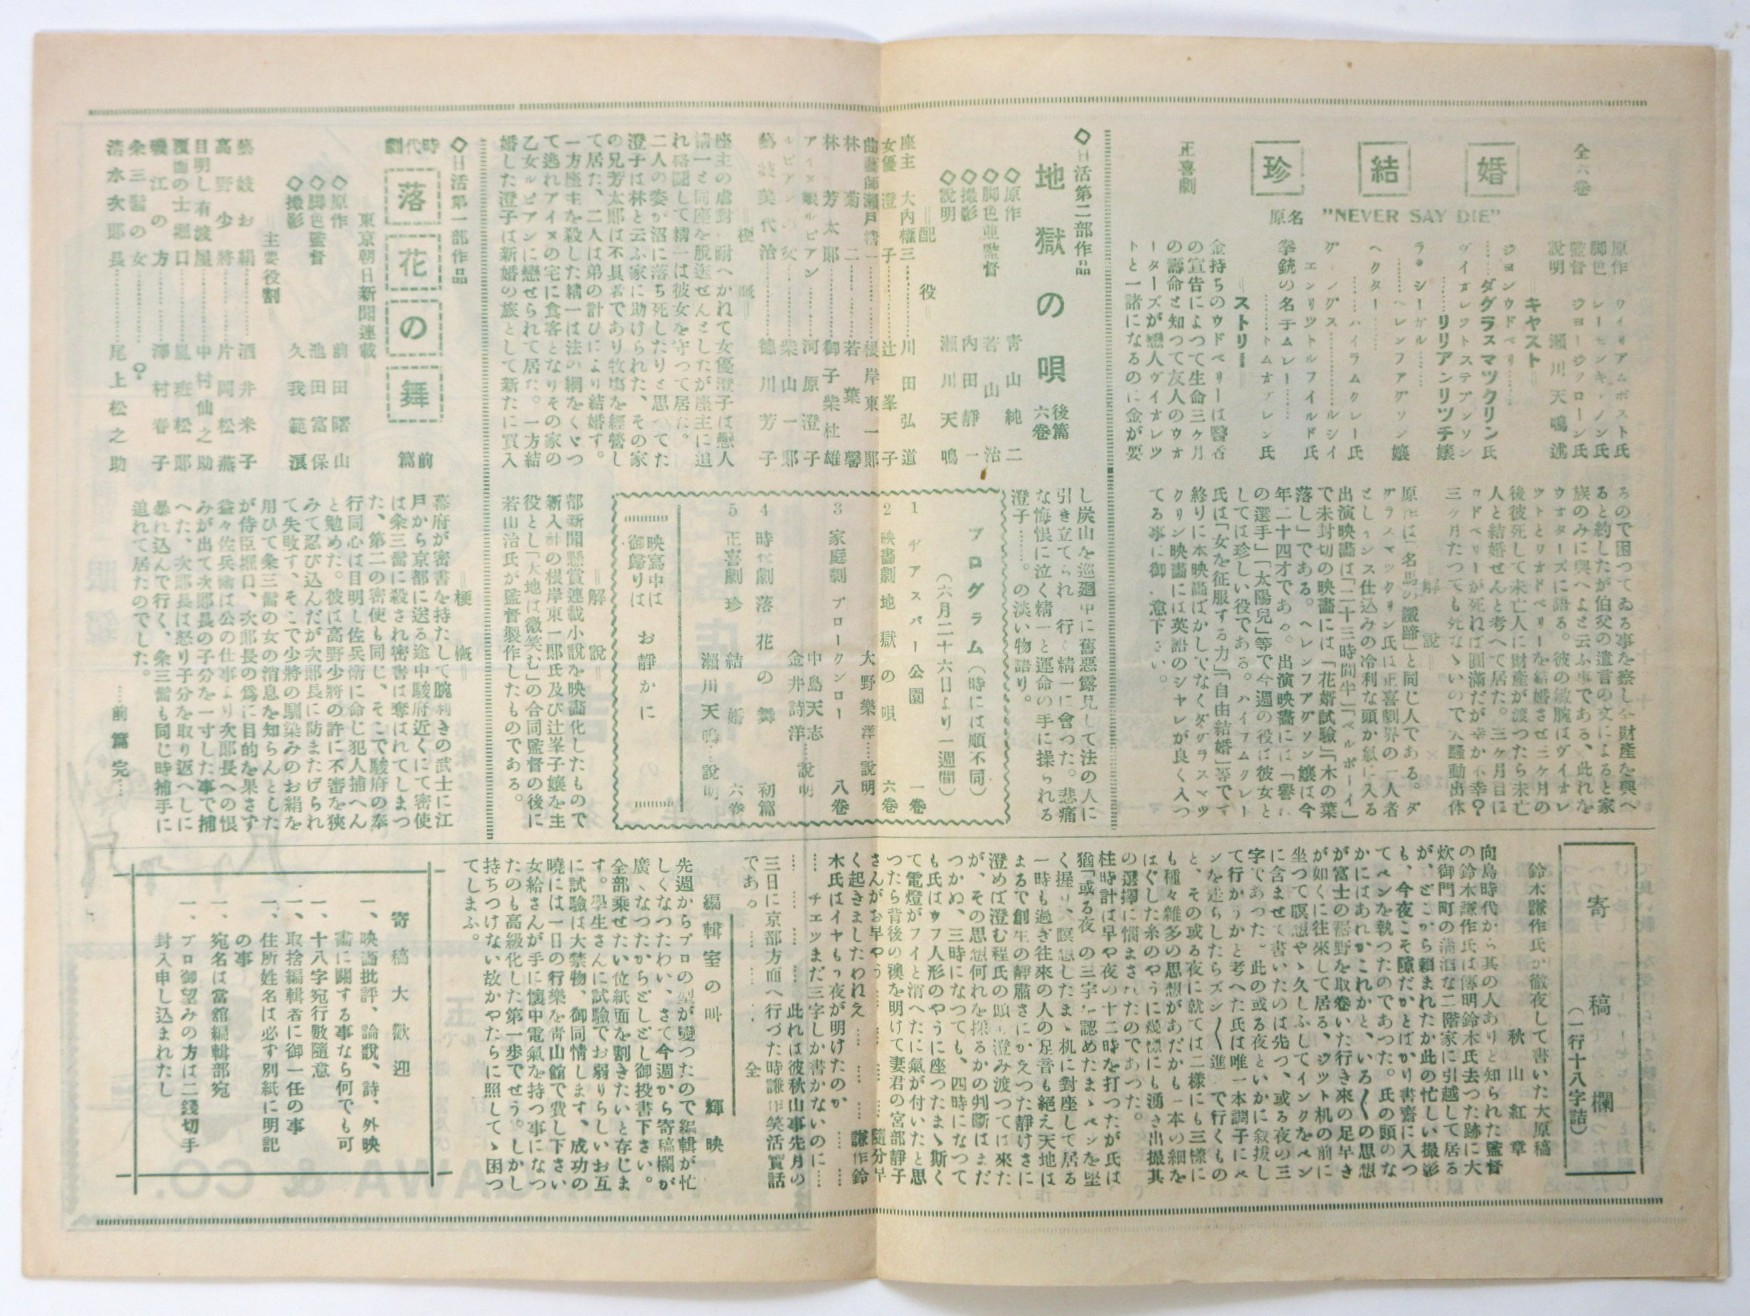 全六巻
珍
結
婚
正喜劇
原名 "NEVER SAY DIE"
原作 ウィリアムポスト氏
監督 ジョージクローン氏
説明 瀬川天鳴述
キャスト
ジョンウドベリー
……ダグラスマツクリン氏
……リリアンリツチ嬢
ヘクター……
拳銃の名手ムレー……
ストリー
金持ちのウドベリーは醫者
の宣告によつて生命三ケ月
の壽命と知つて友人のウォ
ーターズが戀人ヴイオレツ
トと一諸になるのに金が要
るので困つてゐる事を察し全財産を與へ
ると約したが伯父の遺言の文によると家
族のみに與へよと云ふ事である、此れを
後彼死して未亡人に財産が渡つたら未亡
人と結婚せんと考へて居た。三ヶ月目に
解説
原作は「名馬の蹄諦」と同じ人である。ダ
グラスマックリン氏は正喜劇界の一人者
としチャンス仕込みの冷利な頭か氣に入る
出演映畵は「二十三時間半」「ベルボーイ」
で未封切の映畵には「花婿試驗」「木の葉
落し」である。ヘレンフアグソン嬢は今
年二十四才である。出演映畵には「響に
の選手」「太陽兒」等で今週の役は彼女と
しては珍しい役である。ハイラムクレー
氏は「女を征服する力」「自由結婚」等です
終りに本映畵ばかしでなくダグラスマツ
クリン映畵には英語のシヤレが良く入つ
てる事に御注意下さい。
◇日活第二部作品
地獄の唄 後篇六巻
◇原作 青山純二
◇脚色並監督 若山治
◇撮影 内田靜一
◇説明 瀬川天鳴
＝配役
座主 大内權三……川田弘道
女優 澄子……辻峯子
曲藝師瀬戸精一……根岸東一郎
林 菊二……若葉馨
林 芳太郎……御子柴杜雄
アイヌ娘ルビアン……河原澄子
ルビアンの父……柴山一郎
藝妓美代治……徳川芳子
梗概
座主の虐對に耐へかねて女優澄子は戀人
精一と同座を脱送せんとしたが座主に追
れ格闘して精一は彼女を守つて居た。
二人の姿が沼に落ち死したりと思つてた
澄子は林と云ふ家に助けられた、その家
の兄芳太郎は不具者であり牧塲を經營し
て居た、二人は弟の計ひにより結婚す。
一方座主を殺した精一は法の網をくゞつ
て逃れアイヌの宅に食客となりその家の
乙女ルビアンに戀せられて居た。一方結
婚した澄子は新婚の旅として新たに買入
し炭山を巡廻中に舊惡露見して法の人に
引き立てられ行く精一に會つた。悲痛
な悔恨に泣く精一と運命の手に操られる
澄子……。の淡い物語り。
プログラム（時には順不同）
（六月二十六日より一週間）
1 ヂアスパー公園 一巻
2 映畵劇 地獄の唄 六巻
大野樂洋……説明
3 家庭劇 ブロークンロー 八巻
中島天志
金井詩洋……説明
4 時代劇 落花の舞 初篇
5 正喜劇 珍結婚 六巻
瀬川天鳴…説明
映寫中は
御歸りは
お靜かに
＝解説
都新聞懸賞連載小説を映畵化したもので
新入社の根岸東一郎氏及び辻峯子嬢を主
役とし「大地は微笑む」の合同監督の後に
若山治氏が監督製作したものである。
◇日活第一部作品
時代劇
落花の舞
前篇
＝東京朝日新聞連載
◇原作 前田曙山
◇脚色監督 池田富保
◇撮影 久我範溟
主要役割
藝妓お絹……酒井米子
高野少將……片岡松燕
目明し有渡屋……中村仙之助
覆面の士堀口……嵐班松郎
磯江の方……澤村春子
条三䨇の女……？
清水次郎長……尾上松之助
梗概
幕府が密書を持たして腕利きの武士に江
戸から京都に送る途中駿府近くにて密使
は条三䨇に殺され密書は奪はれてしまつ
た、第二の密使も同じ、そこで駿府の奉
行同心は目明し佐兵衛に命じ犯人捕へん
と勉めた。彼は高野少將の許に不審を狹
みて忍び込んだが次郎長に防またげられ
て失敗す、そこで少將の馴染みのお絹を
用ひて条三䨇の女の消息を知らんとした
が侍臣堀口、次郎長の爲に目的を果さず
益々佐兵衛は公の仕事より次郎長への恨
みが出て次郎長の子分を一寸した事で捕
へた、次郎長は怒り子分を取り返へしに
暴れ込んで行く、条三䨇も同じ時捕手に
追れて居たのでした。
……前篇完…
寄稿欄
（一行十八字詰）
鈴木謙作氏が徹夜して書いた大原稿
秋山紅章
向島時代から其の人ありと知られた監督
の鈴木謙作氏は傳明鈴木氏去つた跡に大
炊御門町の蒲洒な二階家に引越して居る
が、どこから頼まれたか此の忙しい撮影
も、今夜こそ隙だかとばかり書齋に入つ
てペンを執つたのであつた。氏の頭のな
かにはあれかこれかと、いろ〱の思想
が富士の裾野を取巻いた行き來の足早き
が如くに往來して居る、ジツト机の前に
坐つて瞑想やゝ久しふしてインクをペン
に含ませて書いたのは先つ、或る夜の三
字であつた。此の或る夜といかに叙援し
て行かうかと考へた氏は唯一本調子にペ
ンを走らしたらズン〱進んで行くもの
と、その或る夜に就ては二樣にも三樣に
も種々雜多の思想があだかも一本の細を
ほぐした糸のやうに幾條にも湧き出撮其
の選擇に惱まされたのであつた。
柱時計は早や夜の十二時を打つたが氏は
猶「或る夜」の三字を認めたまゝペンを堅
く握り、瞑想したまゝ机に對座して居る
一時も過ぎ往來の人の足音も絶え天地は
まるで創生の靜肅さにかえつた靜けさに
澄めば澄む程氏の頭も澄み渡つては來た
が、その思想何れを採るかの判斷はまだ
つかぬ、三時になつても、四時になつて
も氏はロフ人形のやうに座つたまゝ斯く
て電燈がフイと消へたに氣が付いたと思
つたら背後の襖を明けて妻君の宮部靜子
さんがお早やう……………隨分早
く起きましたわれえ…………謙作鈴
木氏はイヤもう夜が明けたのか
…… チェッまだ三字しか書かないのに……
…………此れは彼秋山事先月の
三日に京都方面へ行つた時謙作笑活實話
である。…………全
編輯室の叫 輝映
先週からプロの型が變つたので編輯が忙
しくなつたわい、さて今週から寄稿欄が
廣くなつたからどしどし御投書下さい。
全部乗せたい位紙面を割きたいと存じま
す。學生さんに試驗でお弱りらしいお互
に試驗は大禁物、御同情します、成功の
曉には一日の行樂を靑山館で費し下さい
女給さんが手に懷中電氣を持つ事になつ
たのも高級化した第一歩でせう。しかし
持ちつけない故かやたらに照してゝ困つ
てしまふ。
寄稿大歡迎
一、映畵批評、論説、詩、外映
畵に關する事なら何でも可
一、十八字宛行數隨意
一、取捨編輯者に御一任の事
一、住所姓名は必ず別紙に明記
の事
一、宛名は當舘編輯部宛
一、プロ御望みの方は二錢切手
封入申し込まれたし